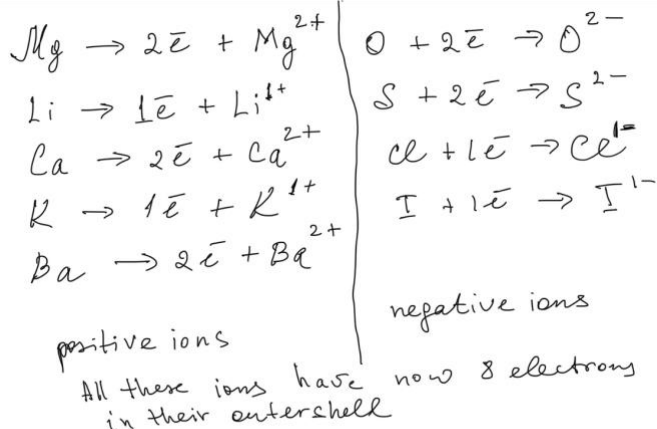 Mg → 2ē + Mg²⁺
Li → 1ē + Li¹⁺
Ca → 2ē + Ca²⁺
K → 1ē + K¹⁺
Ba → 2ē + Ba²⁺
positive ions
O + 2ē → O²⁻
S + 2ē → S²⁻
Cl + 1ē → Cl¹⁻
I + 1ē → I¹⁻
negative ions
All these ions have now 8 electrons
in their outershell